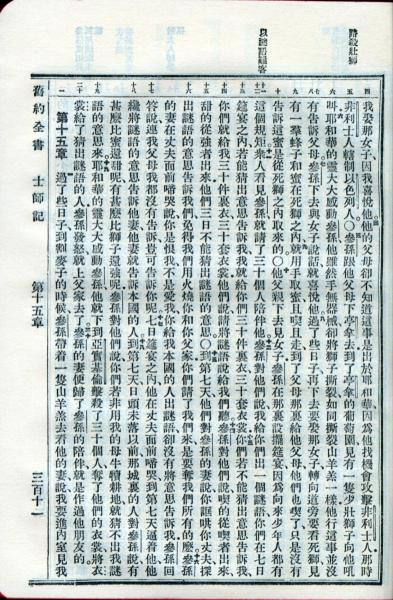 路殺壯獅
以謎語難客
四 我娶那女子因我喜悅他他的父母卻不知道這事是出於耶和華因爲他找機會攻擊非利士人那時
五 非利士人轄制以色列人○參孫跟他父母下亭拿去到了亭拿的葡萄園見有一隻少壯獅子向他吼
六 叫耶和華的靈大大感動參孫他雖然手無器械卻將獅子撕裂如同撕裂山羊羔一樣他行這事並沒
七八 有告訴父母參孫下去與女子說話就喜悅他過了些日子再下去要娶那女子轉向道旁要看死獅見
九 有一羣蜂子和蜜在死獅之內就用手取蜜且喫且走到了父母那裏給他父母他們也喫了只是沒有
十 告訴這蜜是從死獅之內取來的○他父親下去見女子參孫在那裏設擺筵宴因爲向來少年人都有
十一十二 這個規矩衆人看見參孫就請了三十個人陪伴他參孫對他們說我給你們出一個謎語你們在七日
十三 筵宴之內若能猜出意思告訴我我就給你們三十件裏衣三十套衣裳你們若不能猜出意思告訴我
十四 你們就給我三十件裏衣三十套衣裳他們說請將謎語說給我們聽參孫對他們說喫的從喫者出來
十五 甜的從強者出來他們三日不能猜出謎語的意思○到第七天他們對參孫的妻說你誆哄你丈夫探
十六 出謎語的意思告訴我們免得我們用火燒你和你父家你們請了我們來是要奪我們所有的麽參孫
的妻在丈夫面前啼哭說你是恨我不是愛我你給我本國的人出謎語卻沒有將意思告訴我參孫回
十七 答說連我父母我都沒有告訴豈可告訴你呢七日筵宴之內他在丈夫面前啼哭到第七天逼着他他
十八 纔將謎語的意思告訴他妻他妻就告訴本國的人到第七天日頭未落以前那城裏的人對參孫說有
甚麽比蜜還甜呢有甚麽比獅子還強呢參孫對他們說你們若非用我的母牛犢耕地就猜不出我謎
十九 語的意思來耶和華的靈大大感動參孫他就下到亞實基倫擊殺了三十個人奪了他們的衣裳將衣
二十 裳給了猜出謎語的人參孫發怒就上父家去了參孫的妻便歸了參孫的陪伴就是作過他朋友的
一 第十五章 過了些日子到割麥子的時候參孫帶着一隻山羊羔去看他的妻說我要進內室見我
舊約全書 士師記 第十五章 三百十一